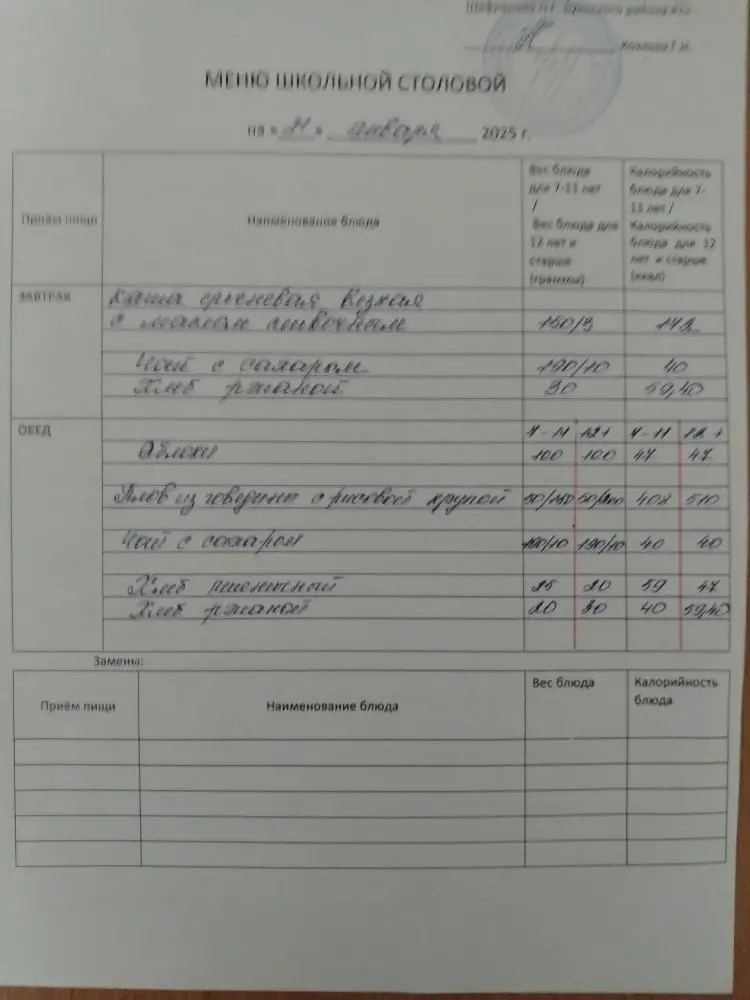 Козлова Г.И.
МЕНЮ ШКОЛЬНОЙ СТОЛОВОЙ
на « 21 » января 2025 г.
Приём пищи
Наименование блюда
Вес блюда для 7-11 лет / Вес блюда для 12 лет и старше (граммы)
Калорийность блюда для 7-11 лет / Калорийность блюда для 12 лет и старше (ккал)
ЗАВТРАК
Каша гречневая вязкая
с маслом сливочным 150/3 142
Чай с сахаром 190/10 40
Хлеб ржаной 30 59,40
ОБЕД 7-11 12+ 7-11 12+
Яблоки 100 100 47 47
Плов из говядины с рисовой крупой 50/150 50/200 408 510
Чай с сахаром 190/10 190/10 40 40
Хлеб пшеничный 25 20 59 47
Хлеб ржаной 20 30 40 59,40
Замены:
Приём пищи
Наименование блюда
Вес блюда
Калорийность блюда